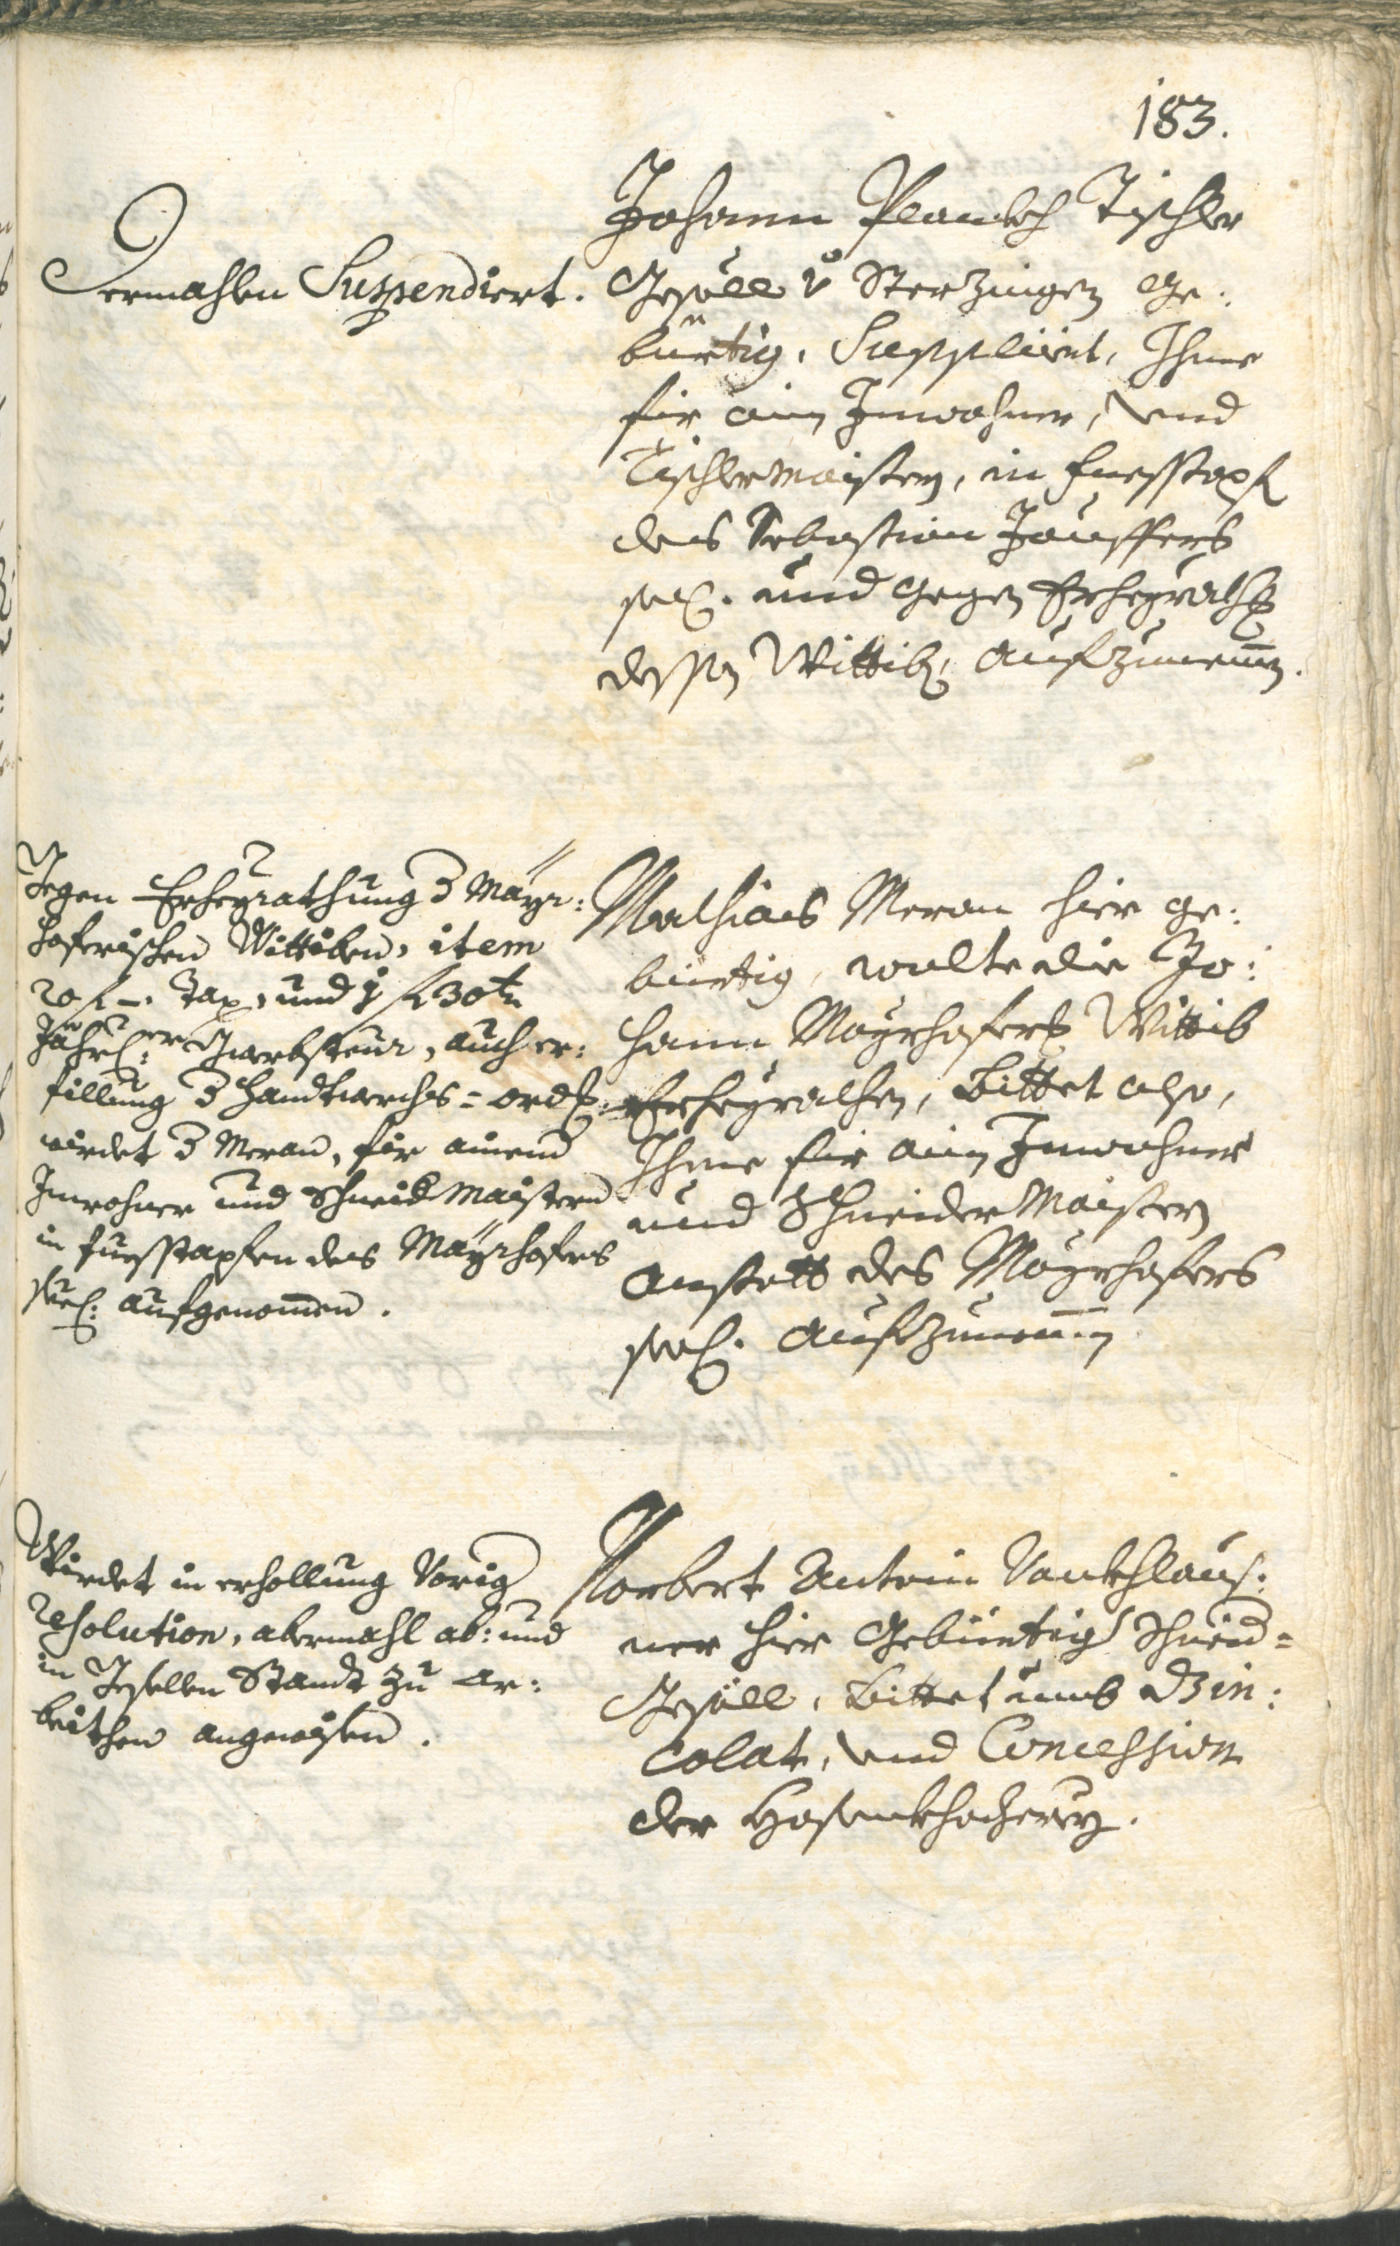 183.
Dermahlen Suspendiert.
Johann Planckh Tischler
Gesöll v Sterzingen ge:
bürtig, Supplicirt, Ihme
fir ain Inwohner, und
Tischlermaistern, in fuesstapf
des Sebastian
seel. und gegen Erheÿrathg
dessen Wittib, aufzunemen.
Gegen Erheÿrathung d Maÿr:
hoferischen Wittiben, item
20 f –. Tax, und 1 f 30 kr
Jährl:er Gwerbsteur, auch er:
fillung d Handtwerchs=ordg:
wirdet d Meran, fir ainend
Inwohner und Schneidmaistern
in fuesstapfen des Maÿrhofers
seel: aufgenomen.
Mathias Meran hier ge:
bürtig, wolte die Jo:
hann Maÿrhoferis Wittib
Erheÿrathen, bittet also,
Ihme fir ain Inwohner
und Schneider Maistern
anstatt des Maÿrhofers
seel. aufzunemen
Wirdet in erhollung Vorig
resolution, abermahl ab: und
in Gesellen Standt zu ar:
beithen angewisen.
Norbert Antoni Vonkhlaus:
ner hier Gebürtig Schneid=
Gesöll, bittet umb d In:
colat, und Concession
der